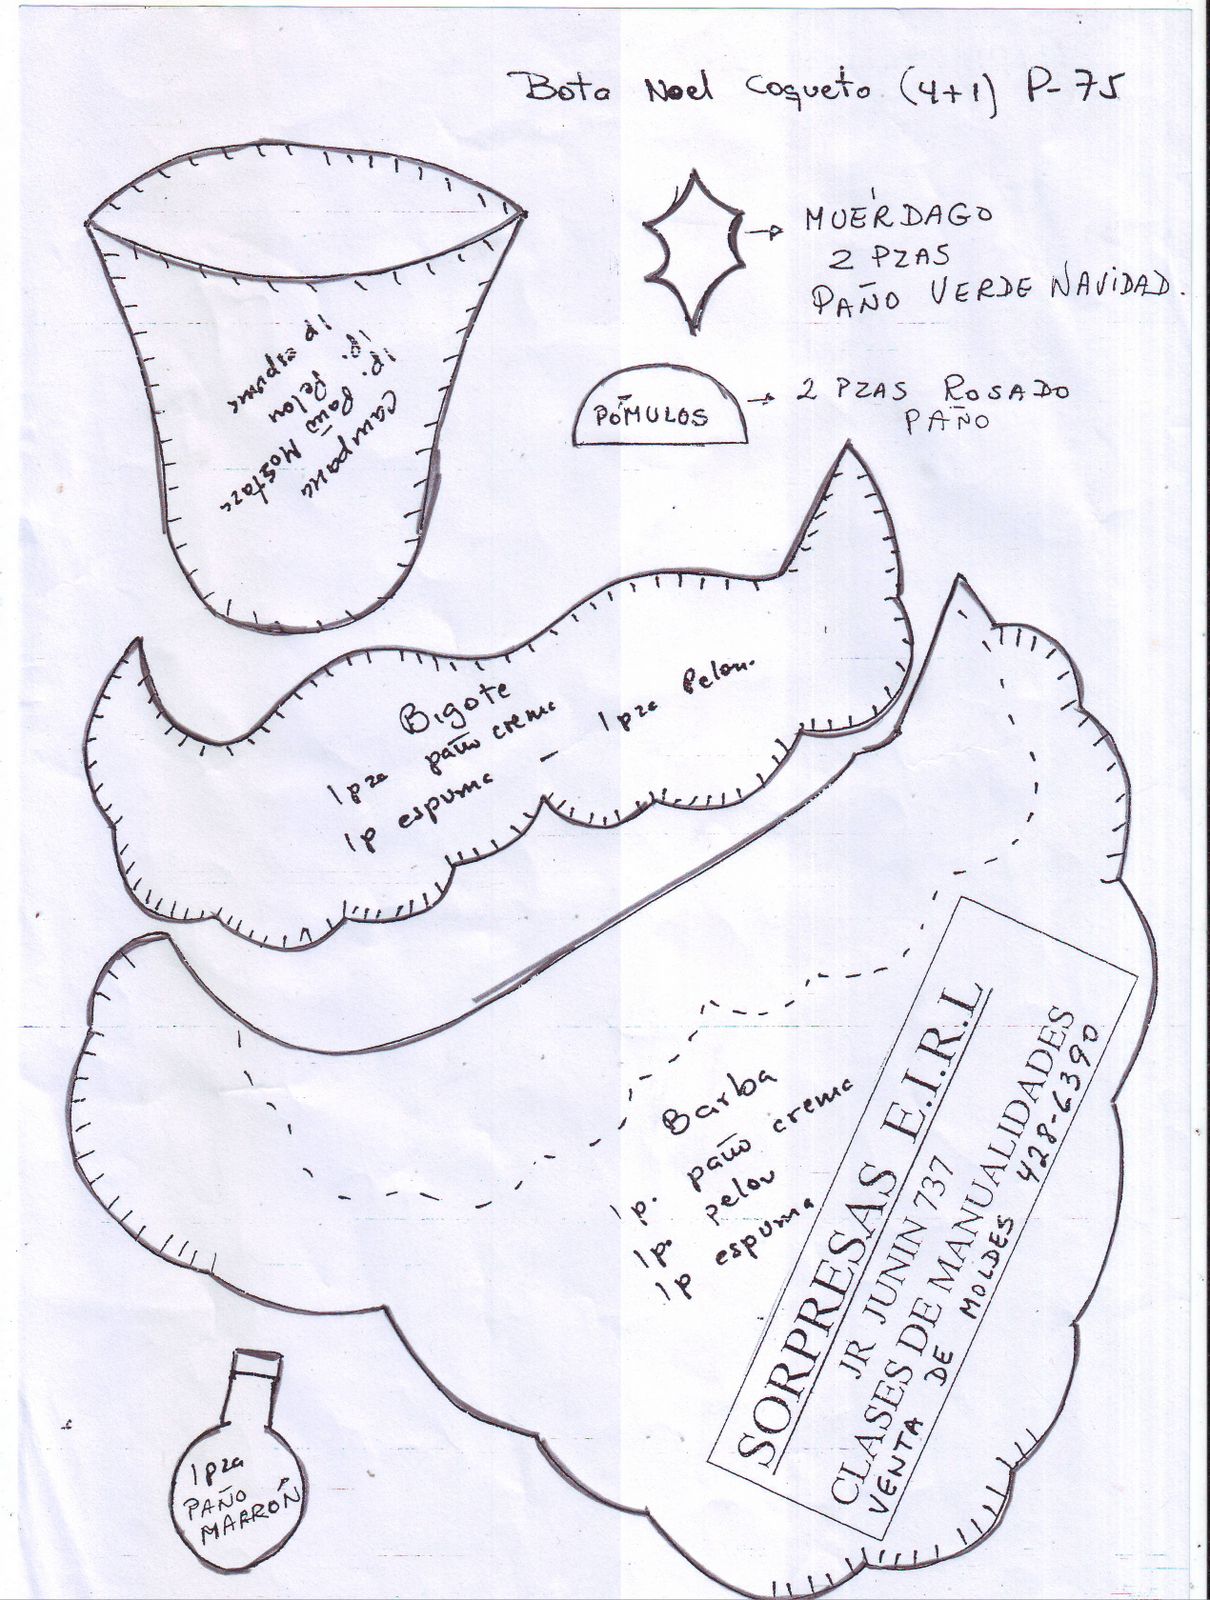 Bota Noel Coqueto (4+1) P-75
MUÉRDAGO
2 PZAS
PAÑO VERDE NAVIDAD.
PÓMULOS
2 PZAS ROSADO
PAÑO
Campana
1p. paño Mostaza
1p. Pelon
1p espuma
Bigote
1 pza paño crema
1p espuma - 1 pza Pelon.
Barba
1p. paño crema
1p. pelon
1p espuma
SORPRESAS E.I.R.L
JR JUNIN 737
CLASES DE MANUALIDADES
VENTA DE MOLDES 428-6390
1 pza
PAÑO
MARRÓN